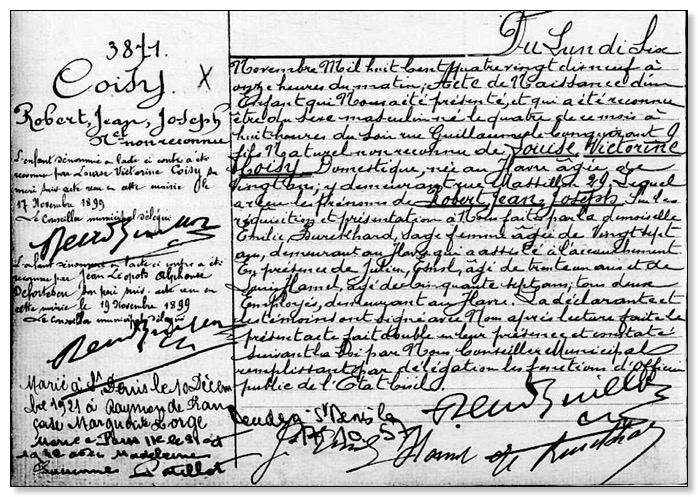 3871.
Coisy. X
Robert, Jean, Joseph
Nel non reconnu
L'enfant dénommé à l'acte ci contre a été
reconnu par Louise Victorine Coisy sa
mère suivt acte reçu en cette mairie le
17 Novembre 1899
Le Conseiller municipal délégué
L'enfant dénommé à l'acte ci contre a été
reconnu par Jean Léopold Alphonse
son père suivt acte reçu en
cette mairie le 19 Novembre 1899
Le Conseiller municipal délégué
Marié à St Denis le 10 Décem
bre 1921 à Raymonde Fran
çoise Marguerite Lorge
Marié à Paris 11e le 31 oct
avec Madeleine
Du Lundi Six
Novembre Mil huit Cent quatre vingt dix neuf à
onze heures du matin, Acte de Naissance d'un
Enfant qui Nous a été présenté, et qui a été reconnu
être du Sexe masculin né le quatre de ce mois à
huit heures du Soir rue Guillaume le Conquérant 9
fils Naturel non reconnu de Louise Victorine
Coisy Domestique, née au Havre âgée de
Vingt ans; y demeurant rue Massillon 29, Lequel
a reçu les prénoms de Robert, Jean, Joseph, Sur la
réquisition et présentation à Nous faites par la demoiselle
Emilie, Sage femme âgée de Vingt sept
ans, demeurant au Havre qui a assisté à l'accouchement
En présence de Julien, âgé de trente un ans et de
Louis Hamel, âgé de cinquante sept ans; tous deux
Employés, demeurant au Havre. La déclarante et
les témoins ont signé avec Nous après lecture faite le
présent acte fait double en leur présence et constaté
Suivant la Loi par Nous Conseiller Municipal
remplissant par délégation les fonctions d'officier
public de l'Etat Civil.
Décédé à St Denis le
Hamel